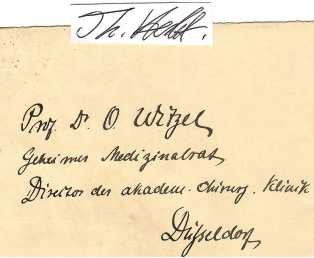 Th.
Prof. Dr. O. Witzel
Geheimer Medizinalrat
Director des akadem. chirurg. Klinik
Düsseldorf